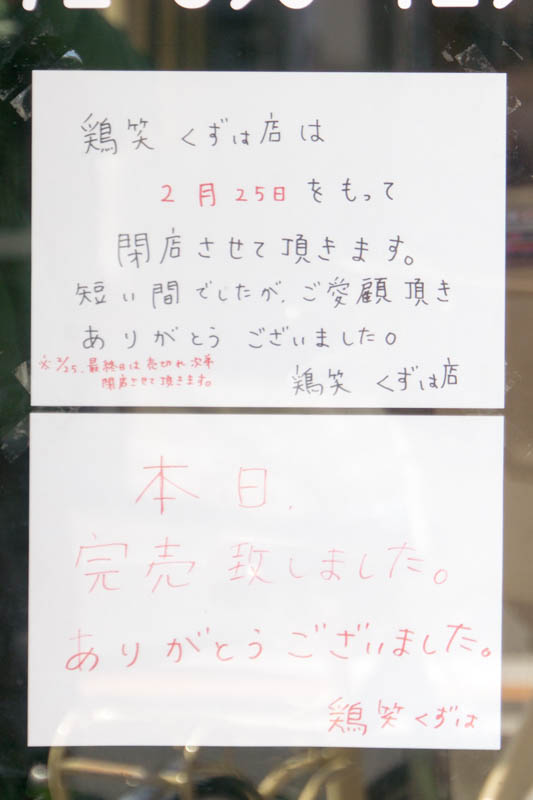 鶏笑 くずは店は
2月25日をもって
閉店させて頂きます。
短い間でしたが、ご愛顧頂き
ありがとう ございました。
※2/25、最終日は売切れ次第
閉店させて頂きます。
鶏笑 くずは店
本日、
完売致しました。
ありがとうございました。
鶏笑くずは